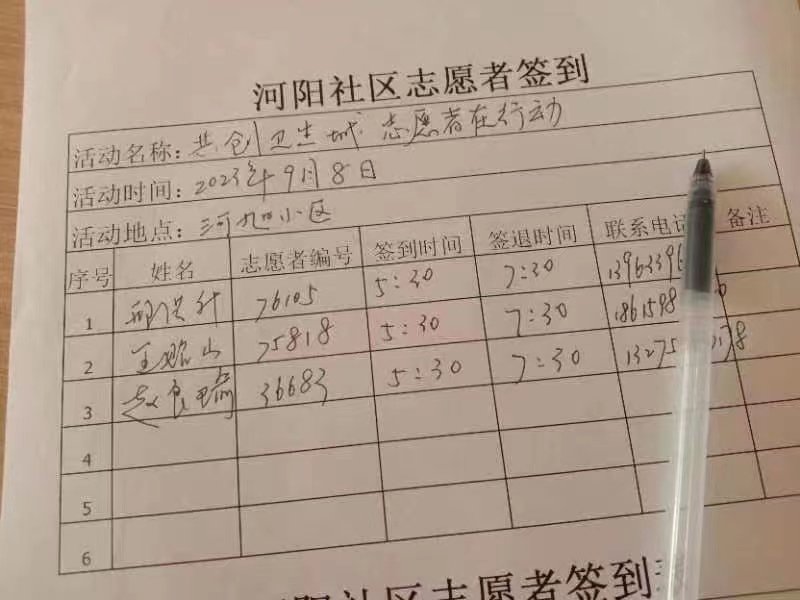 河阳社区志愿者签到
活动名称：共创卫生城 志愿者在行动
活动时间：2023年9月8日
活动地点：河旭小区
序号 姓名 志愿者编号 签到时间 签退时间 联系电话 备注
1 76105 5:30 7:30
2 王 山 75818 5:30 7:30
3 赵良 36683 5:30 7:30
4
5
6
河阳社区志愿者签到